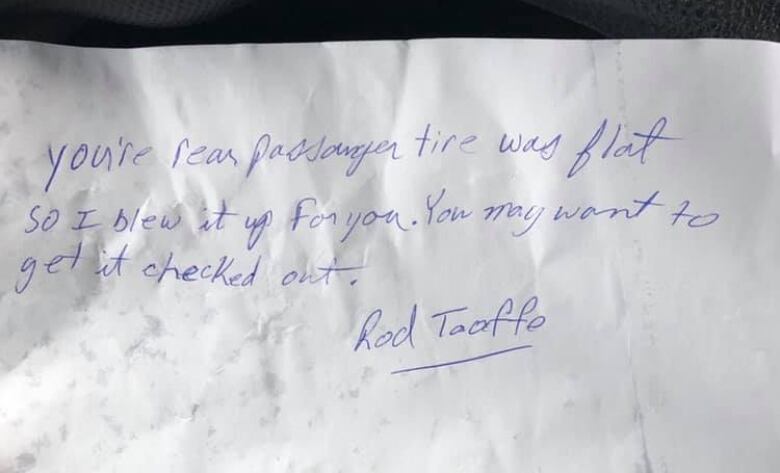 you're rear passanger tire was flat
so I blew it up for you. You may want to
get it checked out.
Rod Taaffe